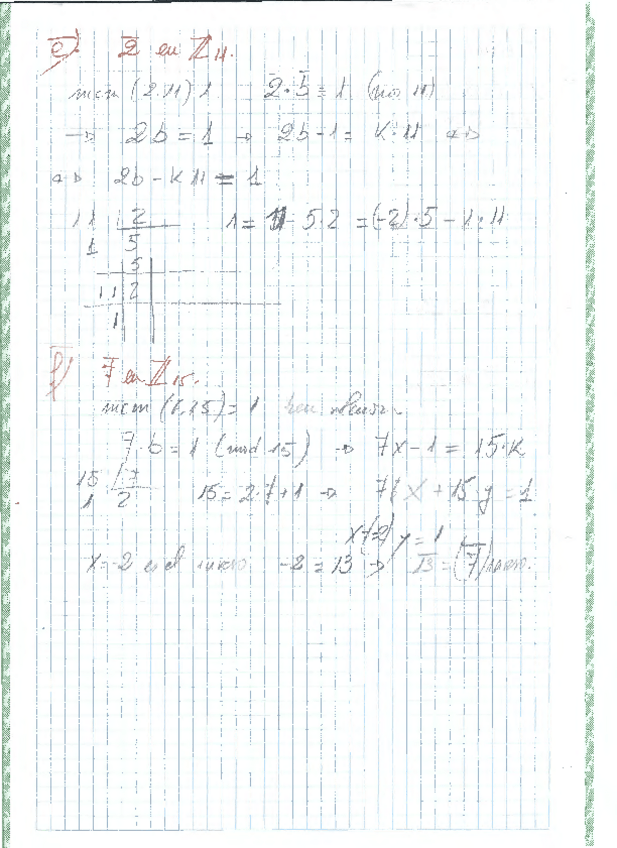 e) 2̄ en ℤ₁₁.
mcm (2.11) 1 2̄·5̄ = 1 (mod 11)
→ 2b = 1 → 2b-1 = K·11 ⇔
⇔ 2b - K11 = 1
11 | 2 1 = 11 - 5 2 = (-2)·5 - 1·11
1 5
5
11 2
1
f) 7̄ en ℤ₁₅.
mcm (7,15) = 1
7·b = 1 (mod 15) → 7x - 1 = 15·K
15 | 7 15 = 2·7+1 → 7 x + 15 y = 1
1 2
x=(-2) y = 1
x=-2 es el -2 = 13 → 13 = (7̄)